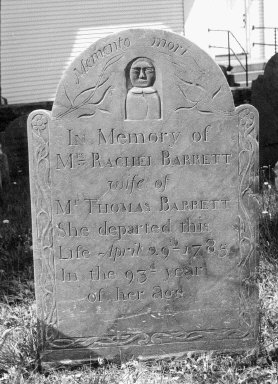 Memento mori
In Memory of
Mrs. RACHEL BARRETT
wife of
Mr. THOMAS BARRETT
She departed this
Life April 29th. 1785
In the 95d. year
of her age